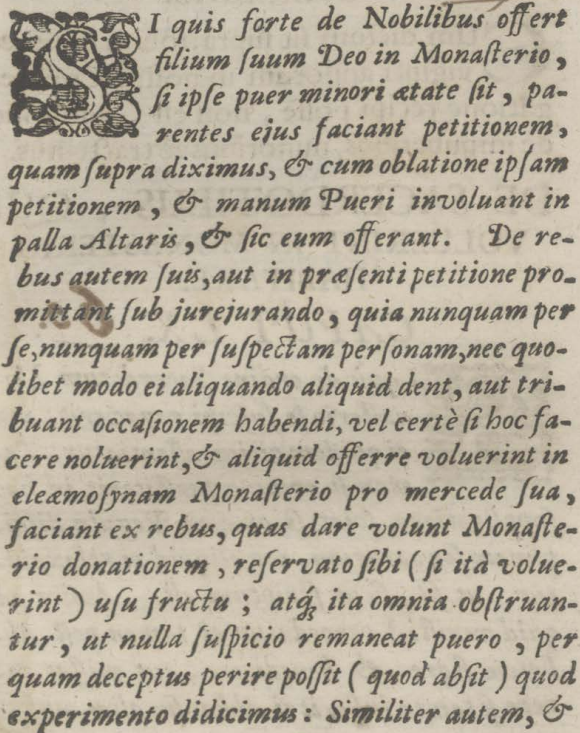 SI quis forte de Nobilibus offert
filium ſuum Deo in Monaſterio,
ſi ipſe puer minori ætate ſit, pa-
rentes ejus faciant petitionem,
quam ſupra diximus, & cum oblatione ipſam
petitionem, & manum Pueri involuant in
palla Altaris, & ſic eum offerant. De re-
bus autem ſuis, aut in præſenti petitione pro-
mittant ſub jurejurando, quia nunquam per
ſe, nunquam per ſuſpectam perſonam, nec quo-
libet modo ei aliquando aliquid dent, aut tri-
buant occaſionem habendi, vel certè ſi hoc fa-
cere noluerint, & aliquid offerre voluerint in
eleæmoſynam Monaſterio pro mercede ſua,
faciant ex rebus, quas dare volunt Monaſte-
rio donationem, reſervato ſibi (ſi ità volue-
rint) uſu fructu; atq́ꝫ ita omnia obſtruan-
tur, ut nulla ſuſpicio remaneat puero, per
quam deceptus perire poſſit (quod abſit) quod
experimento didicimus: Similiter autem, &